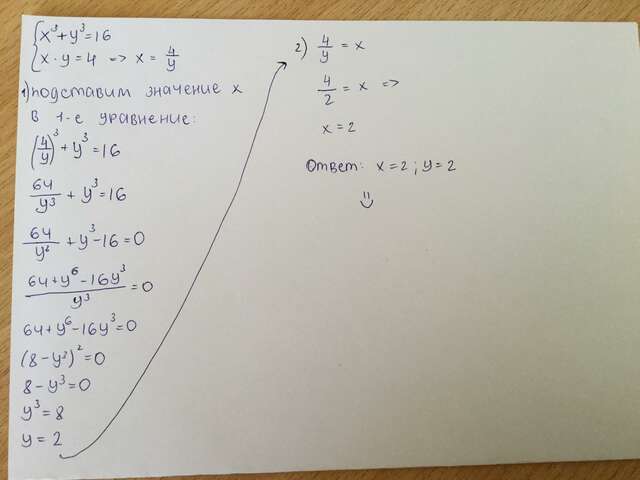 x³+y³=16
x·y=4 => x = 4/y
1) подставим значение x
в 1-е уравнение:
(4/y)³ + y³ = 16
64/y³ + y³ = 16
64/y³ + y³ - 16 = 0
(64 + y⁶ - 16y³)/y³ = 0
64 + y⁶ - 16y³ = 0
(8 - y³)² = 0
8 - y³ = 0
y³ = 8
y = 2
2) 4/y = x
4/2 = x =>
x = 2
Ответ: x = 2 ; y = 2